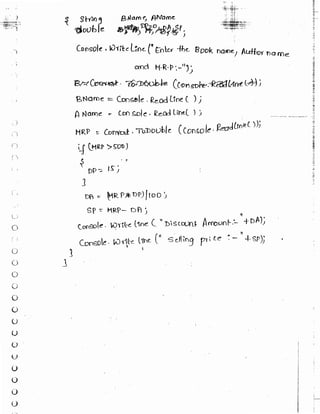 { String BName, AName
double MRP, DP=0, DA, SP;
Console.WriteLine("Enter the Book name, Author name
and M.R.P:-");
BName = Console.ReadLine( );
AName = Console.ReadLine( );
MRP = Convert.ToDouble (Console.ReadLine( ));
if (MRP >500)
{
DP= 15;
}
DA = (MRP*DP)/100;
SP = MRP- DA;
Console.WriteLine ("Discount Amount:-"+DA);
Console.Writeline (" Selling price :-"+SP);
}
}